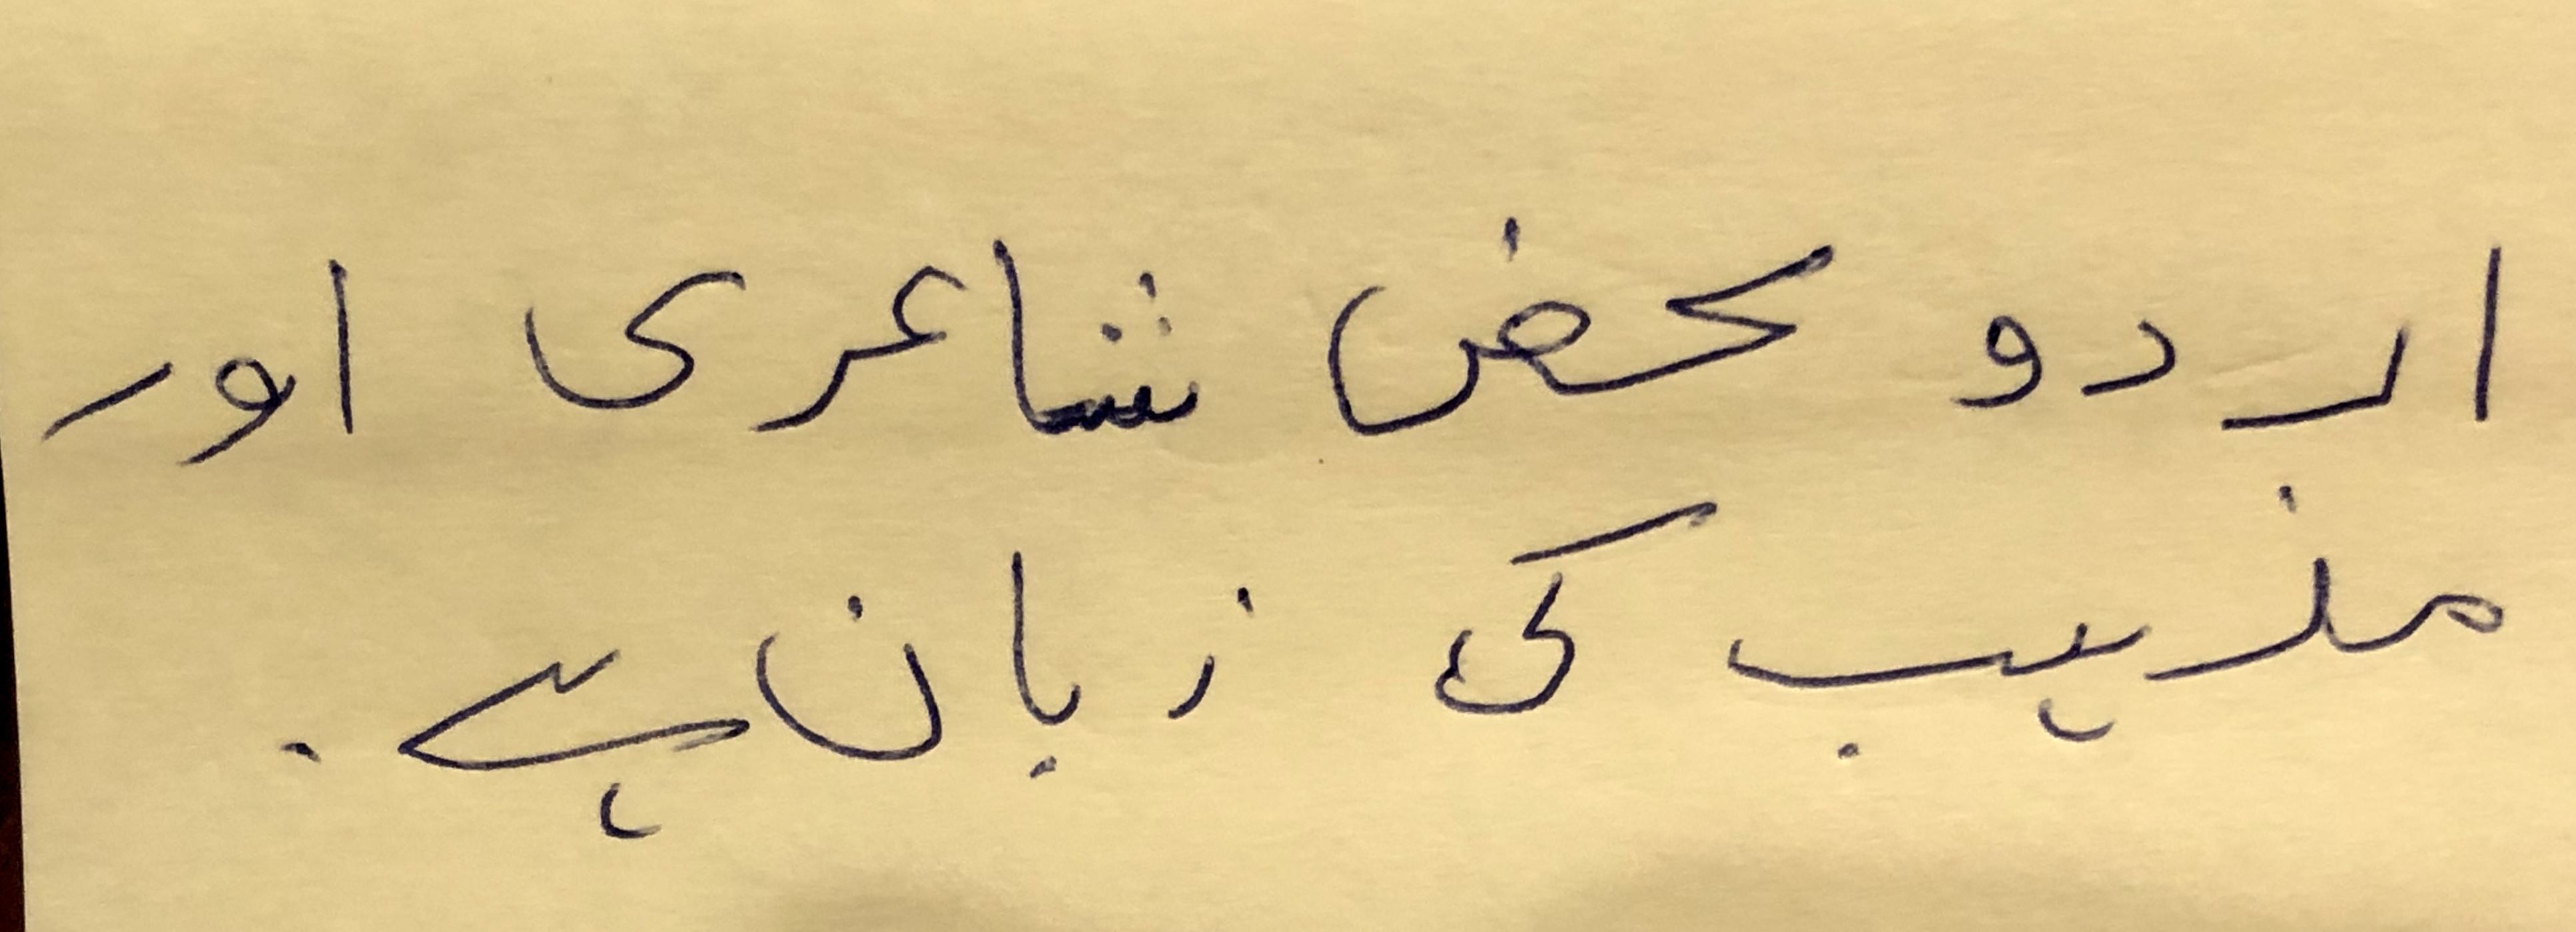 اردو محض شاعری اور
مذہب کی زبان ہے.